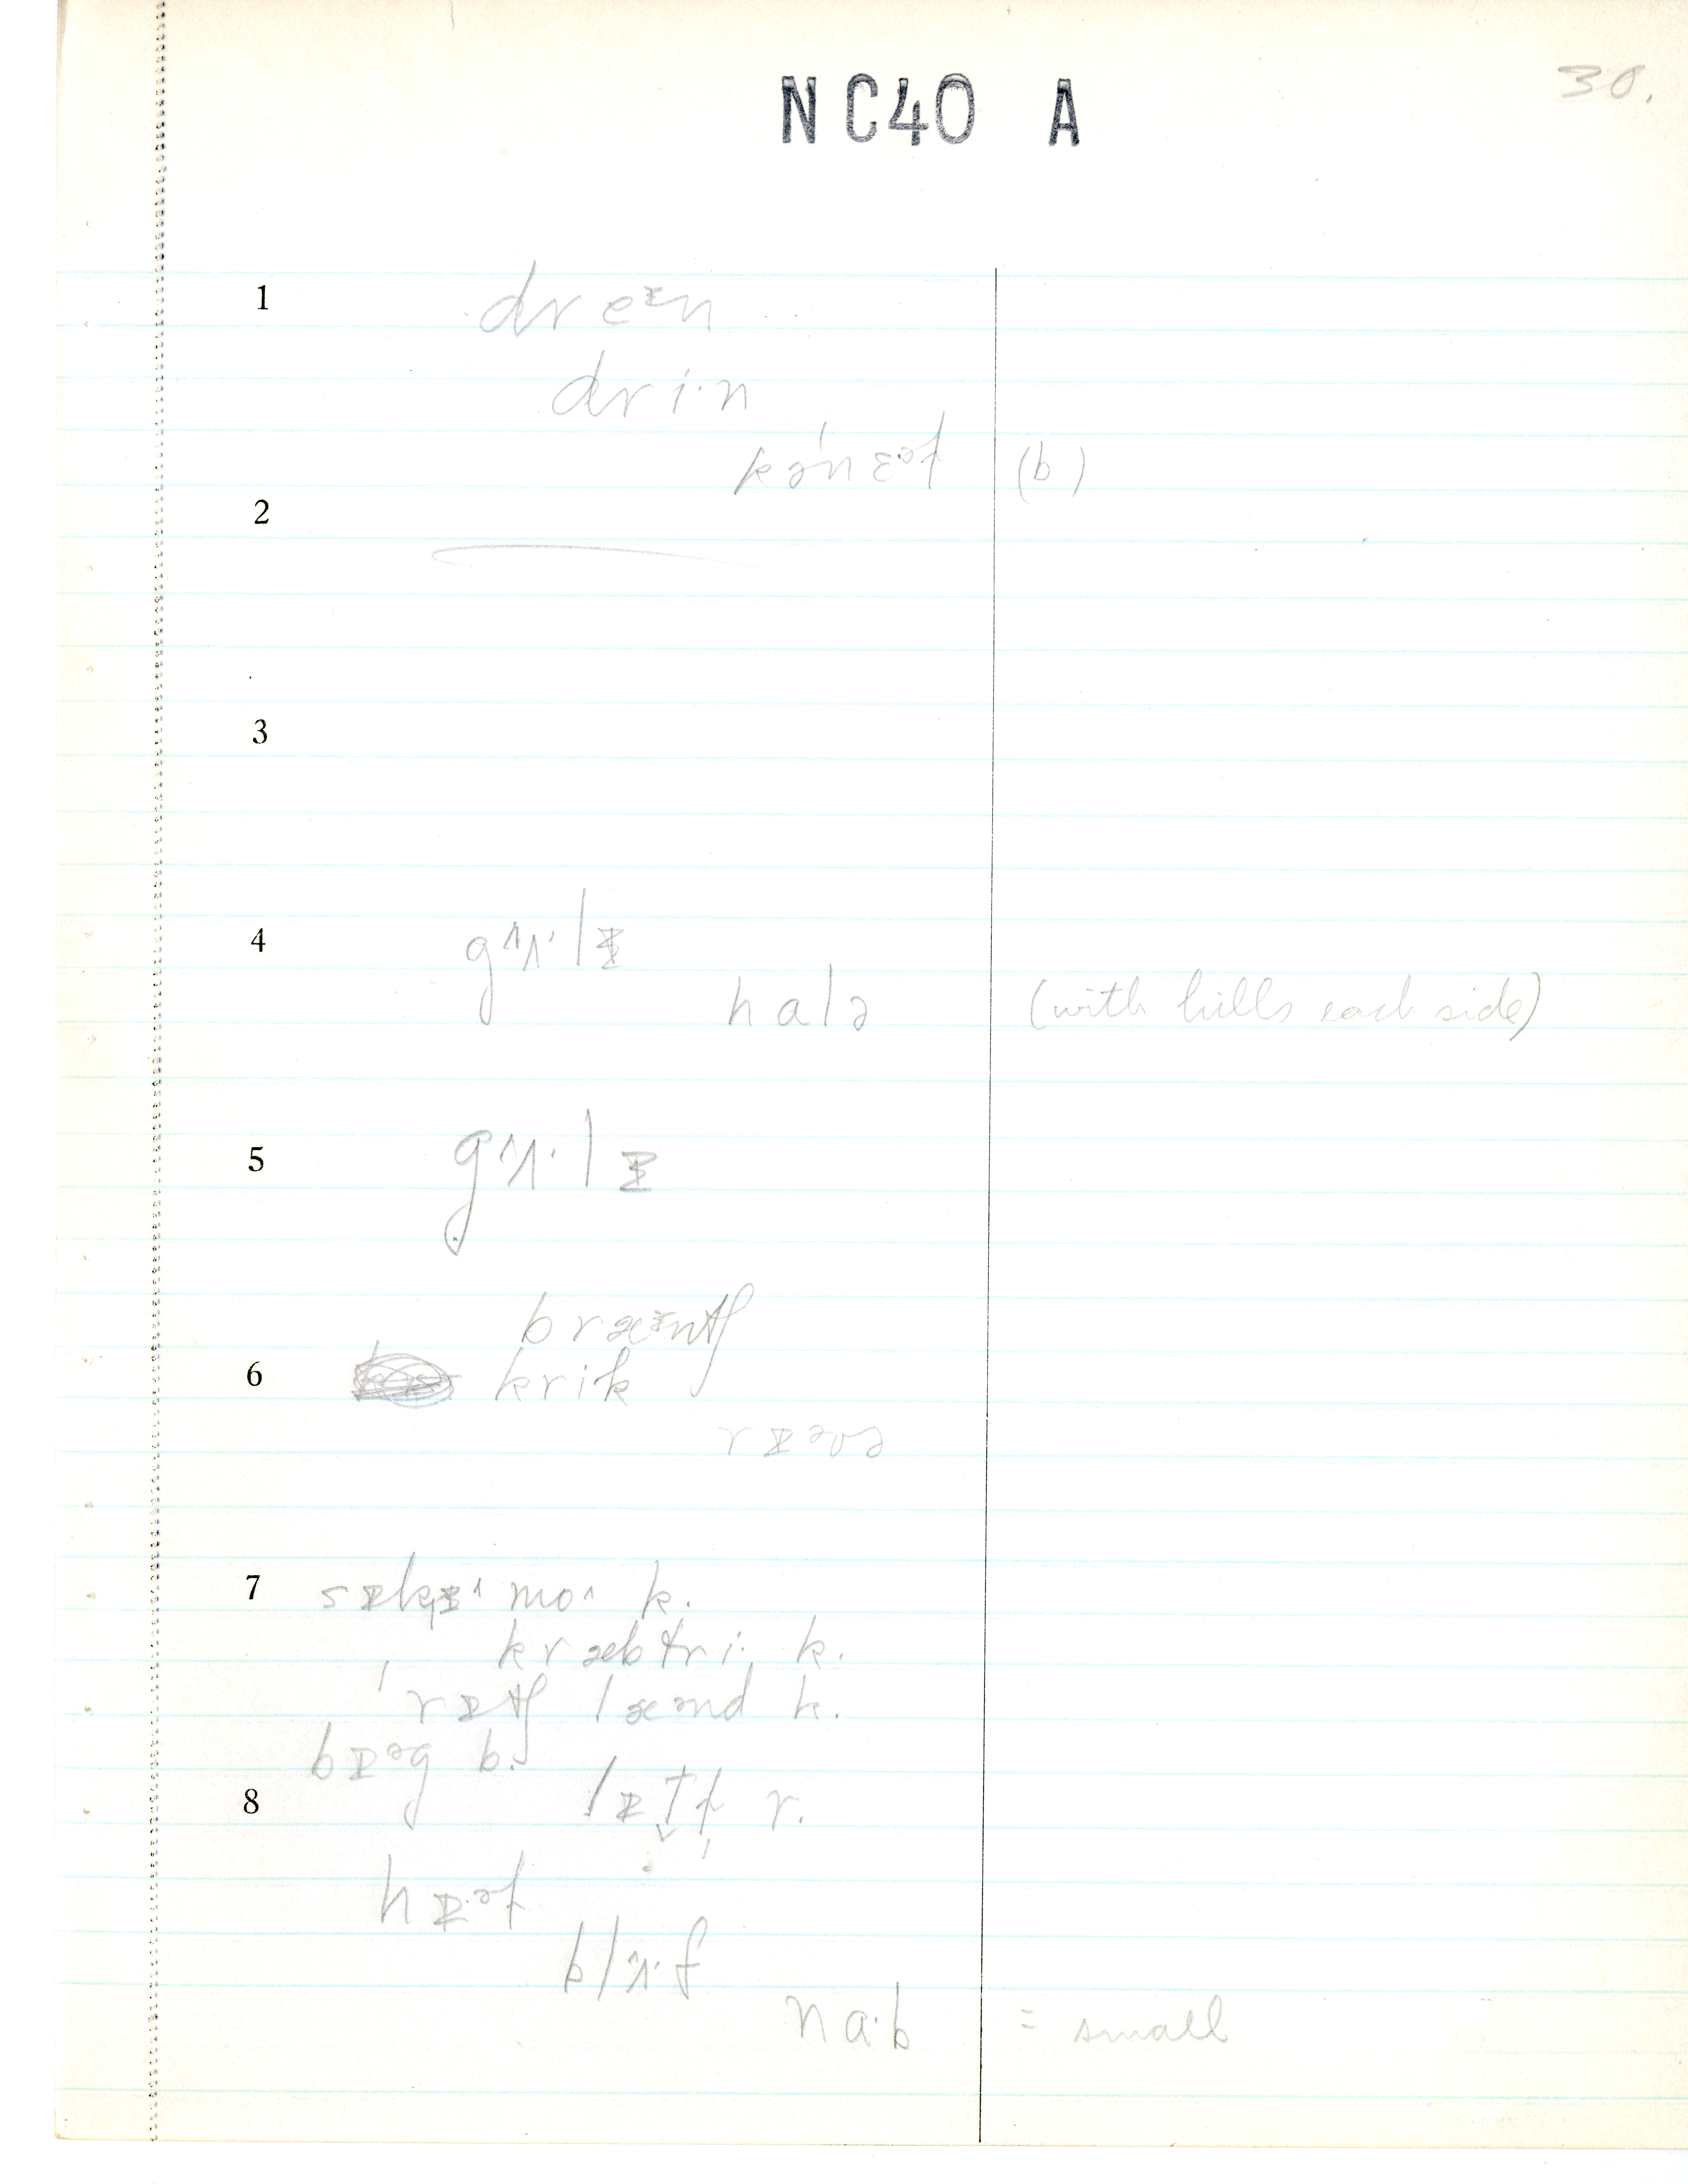 NC40 A
30.
1 dreᶤn
dri·n
kənɛᵊl (b)
2
3
4 gʌ·lɪ
halə (with hills each side)
5 gʌ·lɪ
bræᶤntʃ
6 krik
rɪᵊvə
7
mo^ k.
kræbtri· k.
rɪtʃ læᵊnd k.
bɪᵊg b.
8 lɪtl̩ r.
hɪ·ᵊl
blʌ·f
na·b = small